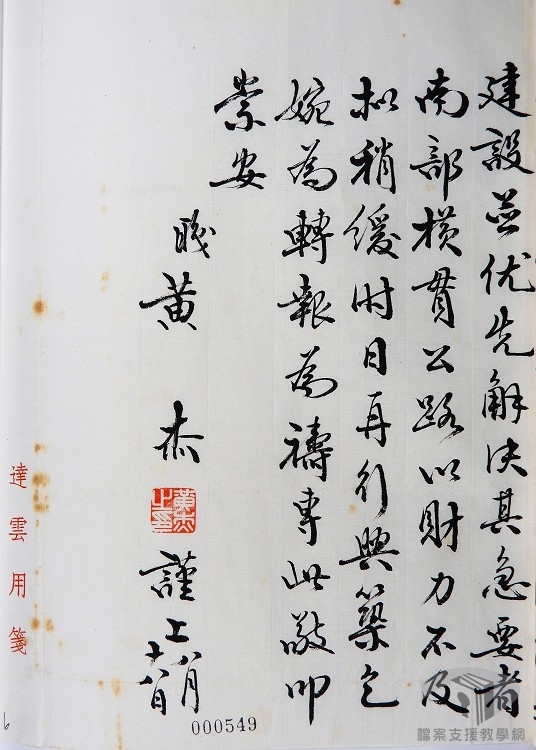 建設並優先解決其急要者
南部橫貫公路以財力不及
擬稍緩時日再行興築乞
婉為轉報為禱專此敬叩
崇安
職黃杰
黃杰之印
謹上
八月
十八日
達雲用箋
000549
檔案支援教學網
6